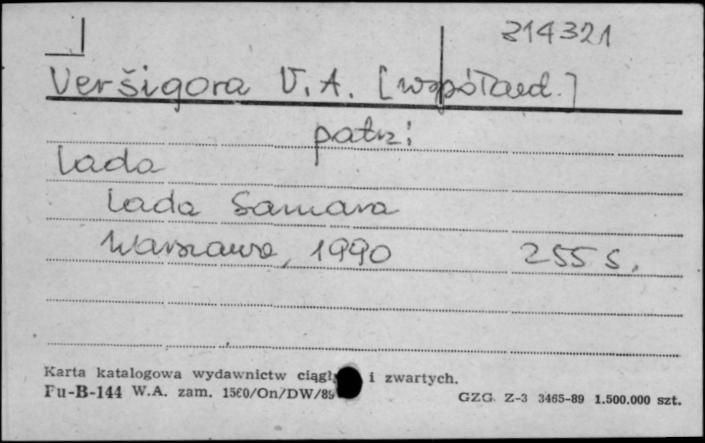 314321
Veršigora V. A. [współaut.]
patrz:
Lada
Lada Samara
Warszawa, 1990 255 s.
Karta katalogowa wydawnictw ciągł i zwartych.
Pu-B-144 W.A. zam. 1560/On/DW/89 GZG. Z-3 3465-89 1.500.000 szt.